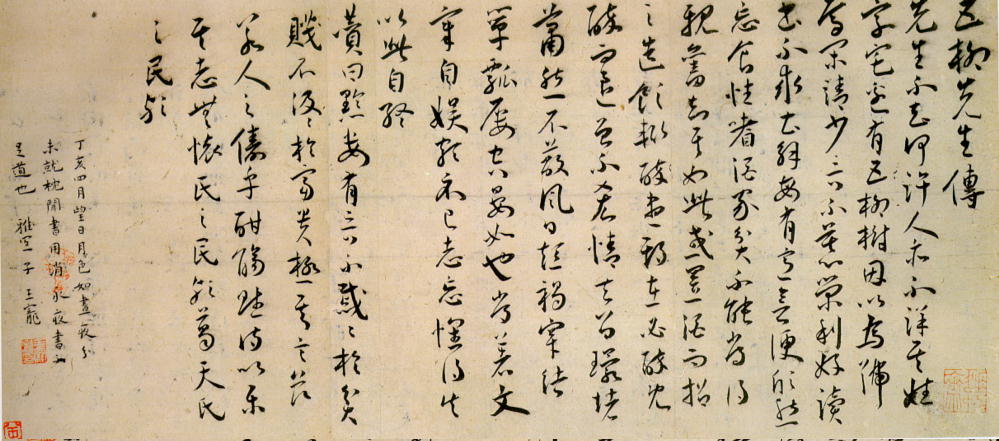 五柳先生傳
先生不知何許人亦不詳其姓
字宅邊有五柳樹因以為號
焉閑靖少言不慕榮利好讀
書不求甚解每有會意便欣然
忘食性嗜酒家貧不能常得
親舊知其如此或置酒而招
之造飲輒盡期在必醉既
醉而退曾不吝情去留環堵
蕭然不蔽風日短褐穿結
簞瓢屢空晏如也常著文
章自娛頗示己志忘懷得失
以此自終
贊曰黔婁有言不戚〻於貧
賤不汲〻於富貴極其言茲
若人之儔乎酣觴賦詩以樂
其志無懷氏之民歟葛天氏
之民歟
丁亥四月望日月色如晝夜分
未就枕閒書用消永夜書不
足道也 雅宜子王寵